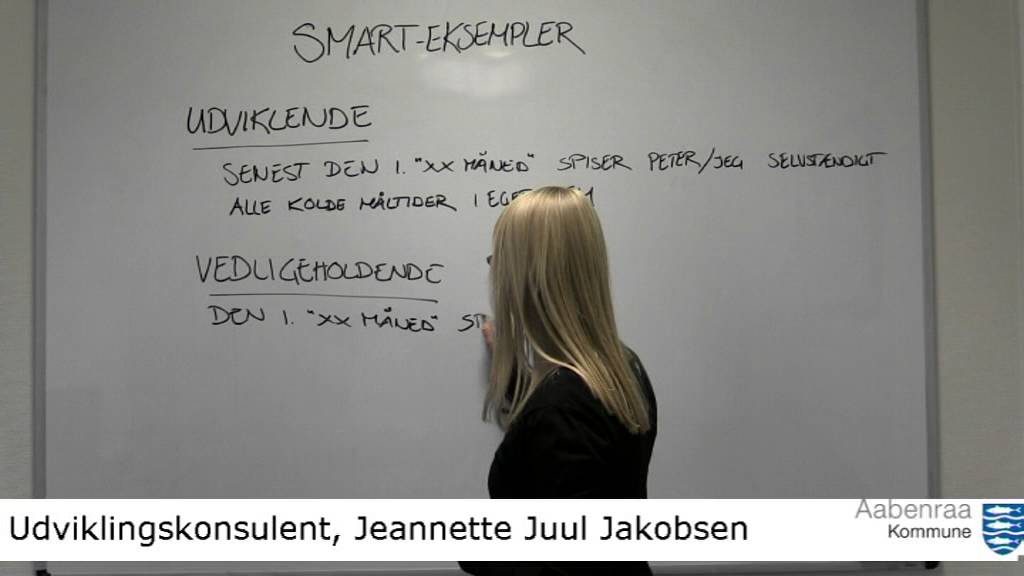 SMART-EKSEMPLER
UDVIKLENDE
SENEST DEN 1. "XX MÅNED" SPISER PETER/JEG SELVSTÆNDIGT
ALLE KOLDE MÅLTIDER I
VEDLIGEHOLDENDE
DEN 1. "XX MÅNED"
Udviklingskonsulent, Jeannette Juul Jakobsen
Aabenraa
Kommune